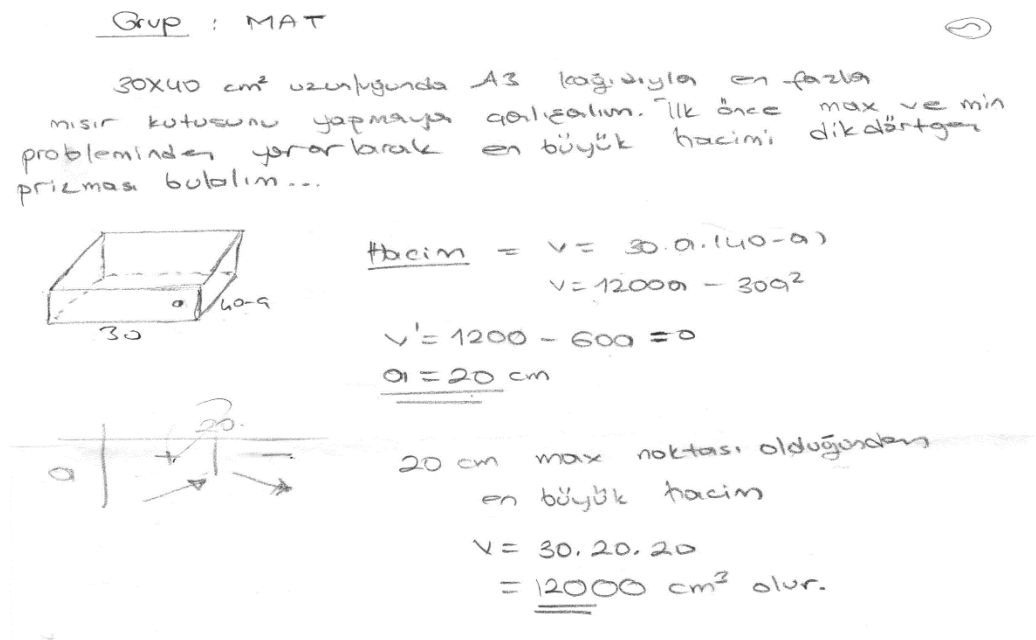 Grup : MAT
5
30x40 cm² uzunluğunda A3 kağıdıyla en fazla
mısır kutusunu yapmaya çalışalım. İlk önce max ve min
probleminden yararlanarak en büyük hacimi dikdörtgen
prizması bulalım...
Hacim = V = 30.a.(40-a)
V = 1200a - 30a²
a
40-a
30
V' = 1200 - 60a = 0
a = 20 cm
20
a + -
20 cm max noktası olduğundan
en büyük hacim
V = 30.20.20
= 12000 cm³ olur.